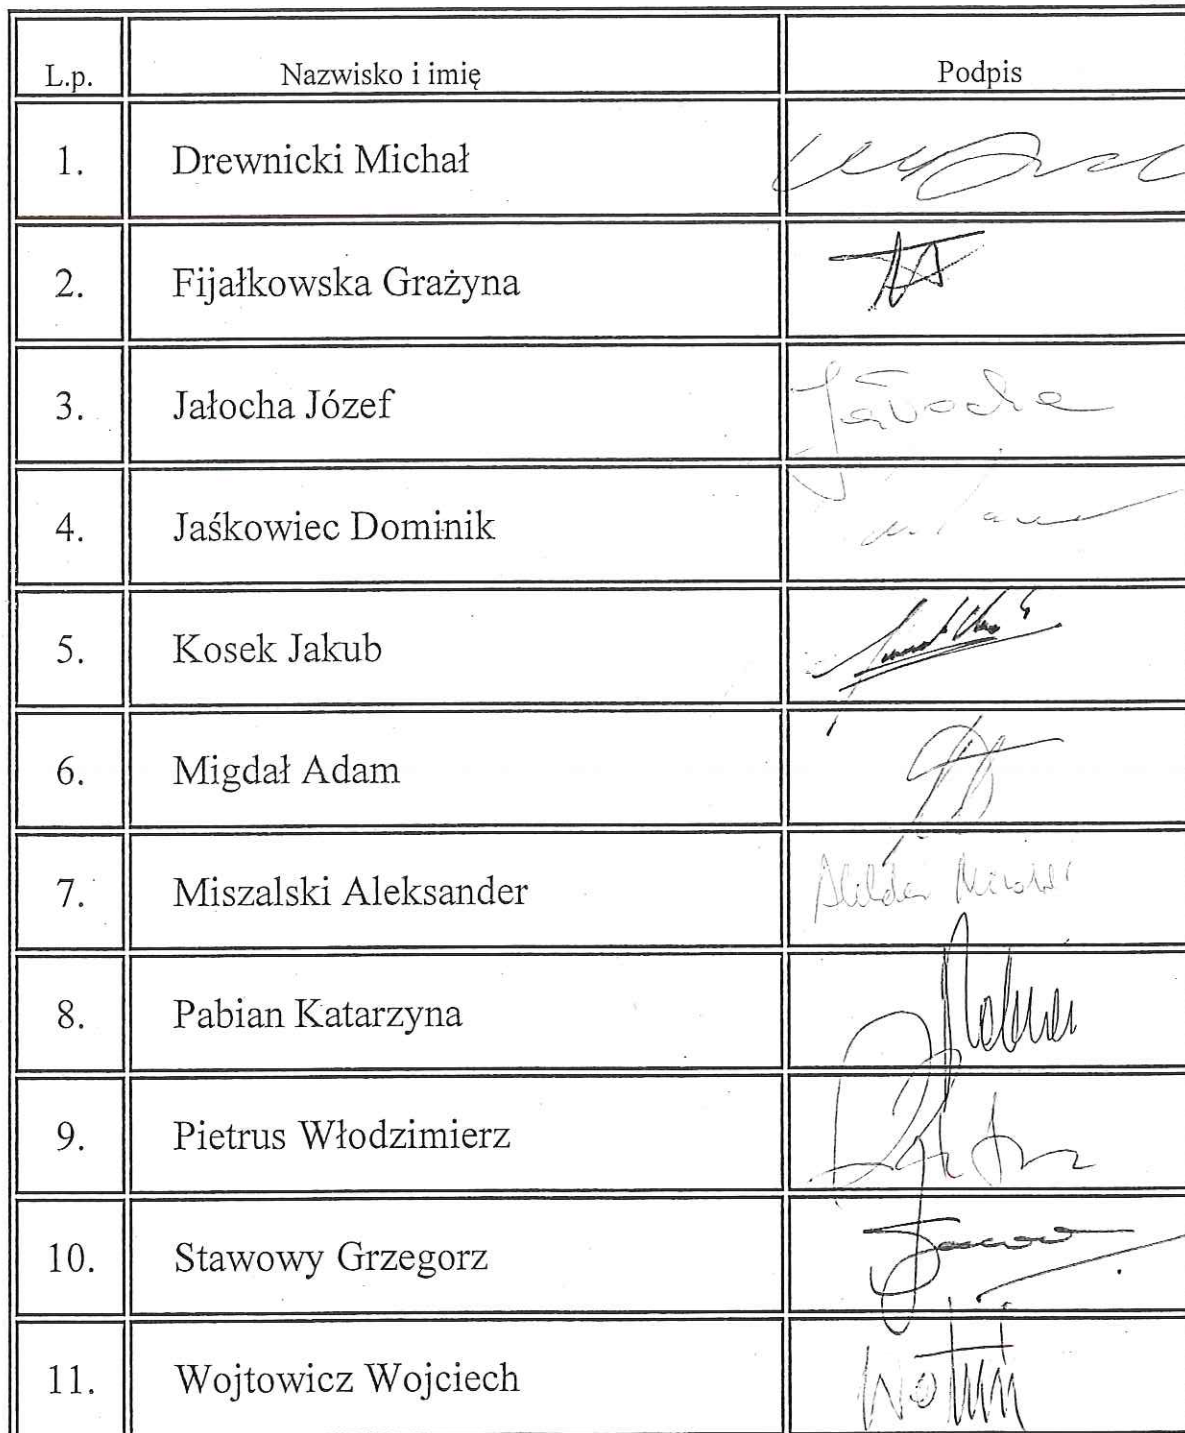 L.p. Nazwisko i imię Podpis
1. Drewnicki Michał
2. Fijałkowska Grażyna
3. Jałocha Józef Jałocha
4. Jaśkowiec Dominik
5. Kosek Jakub
6. Migdał Adam
7. Miszalski Aleksander
8. Pabian Katarzyna
9. Pietrus Włodzimierz
10. Stawowy Grzegorz
11. Wojtowicz Wojciech